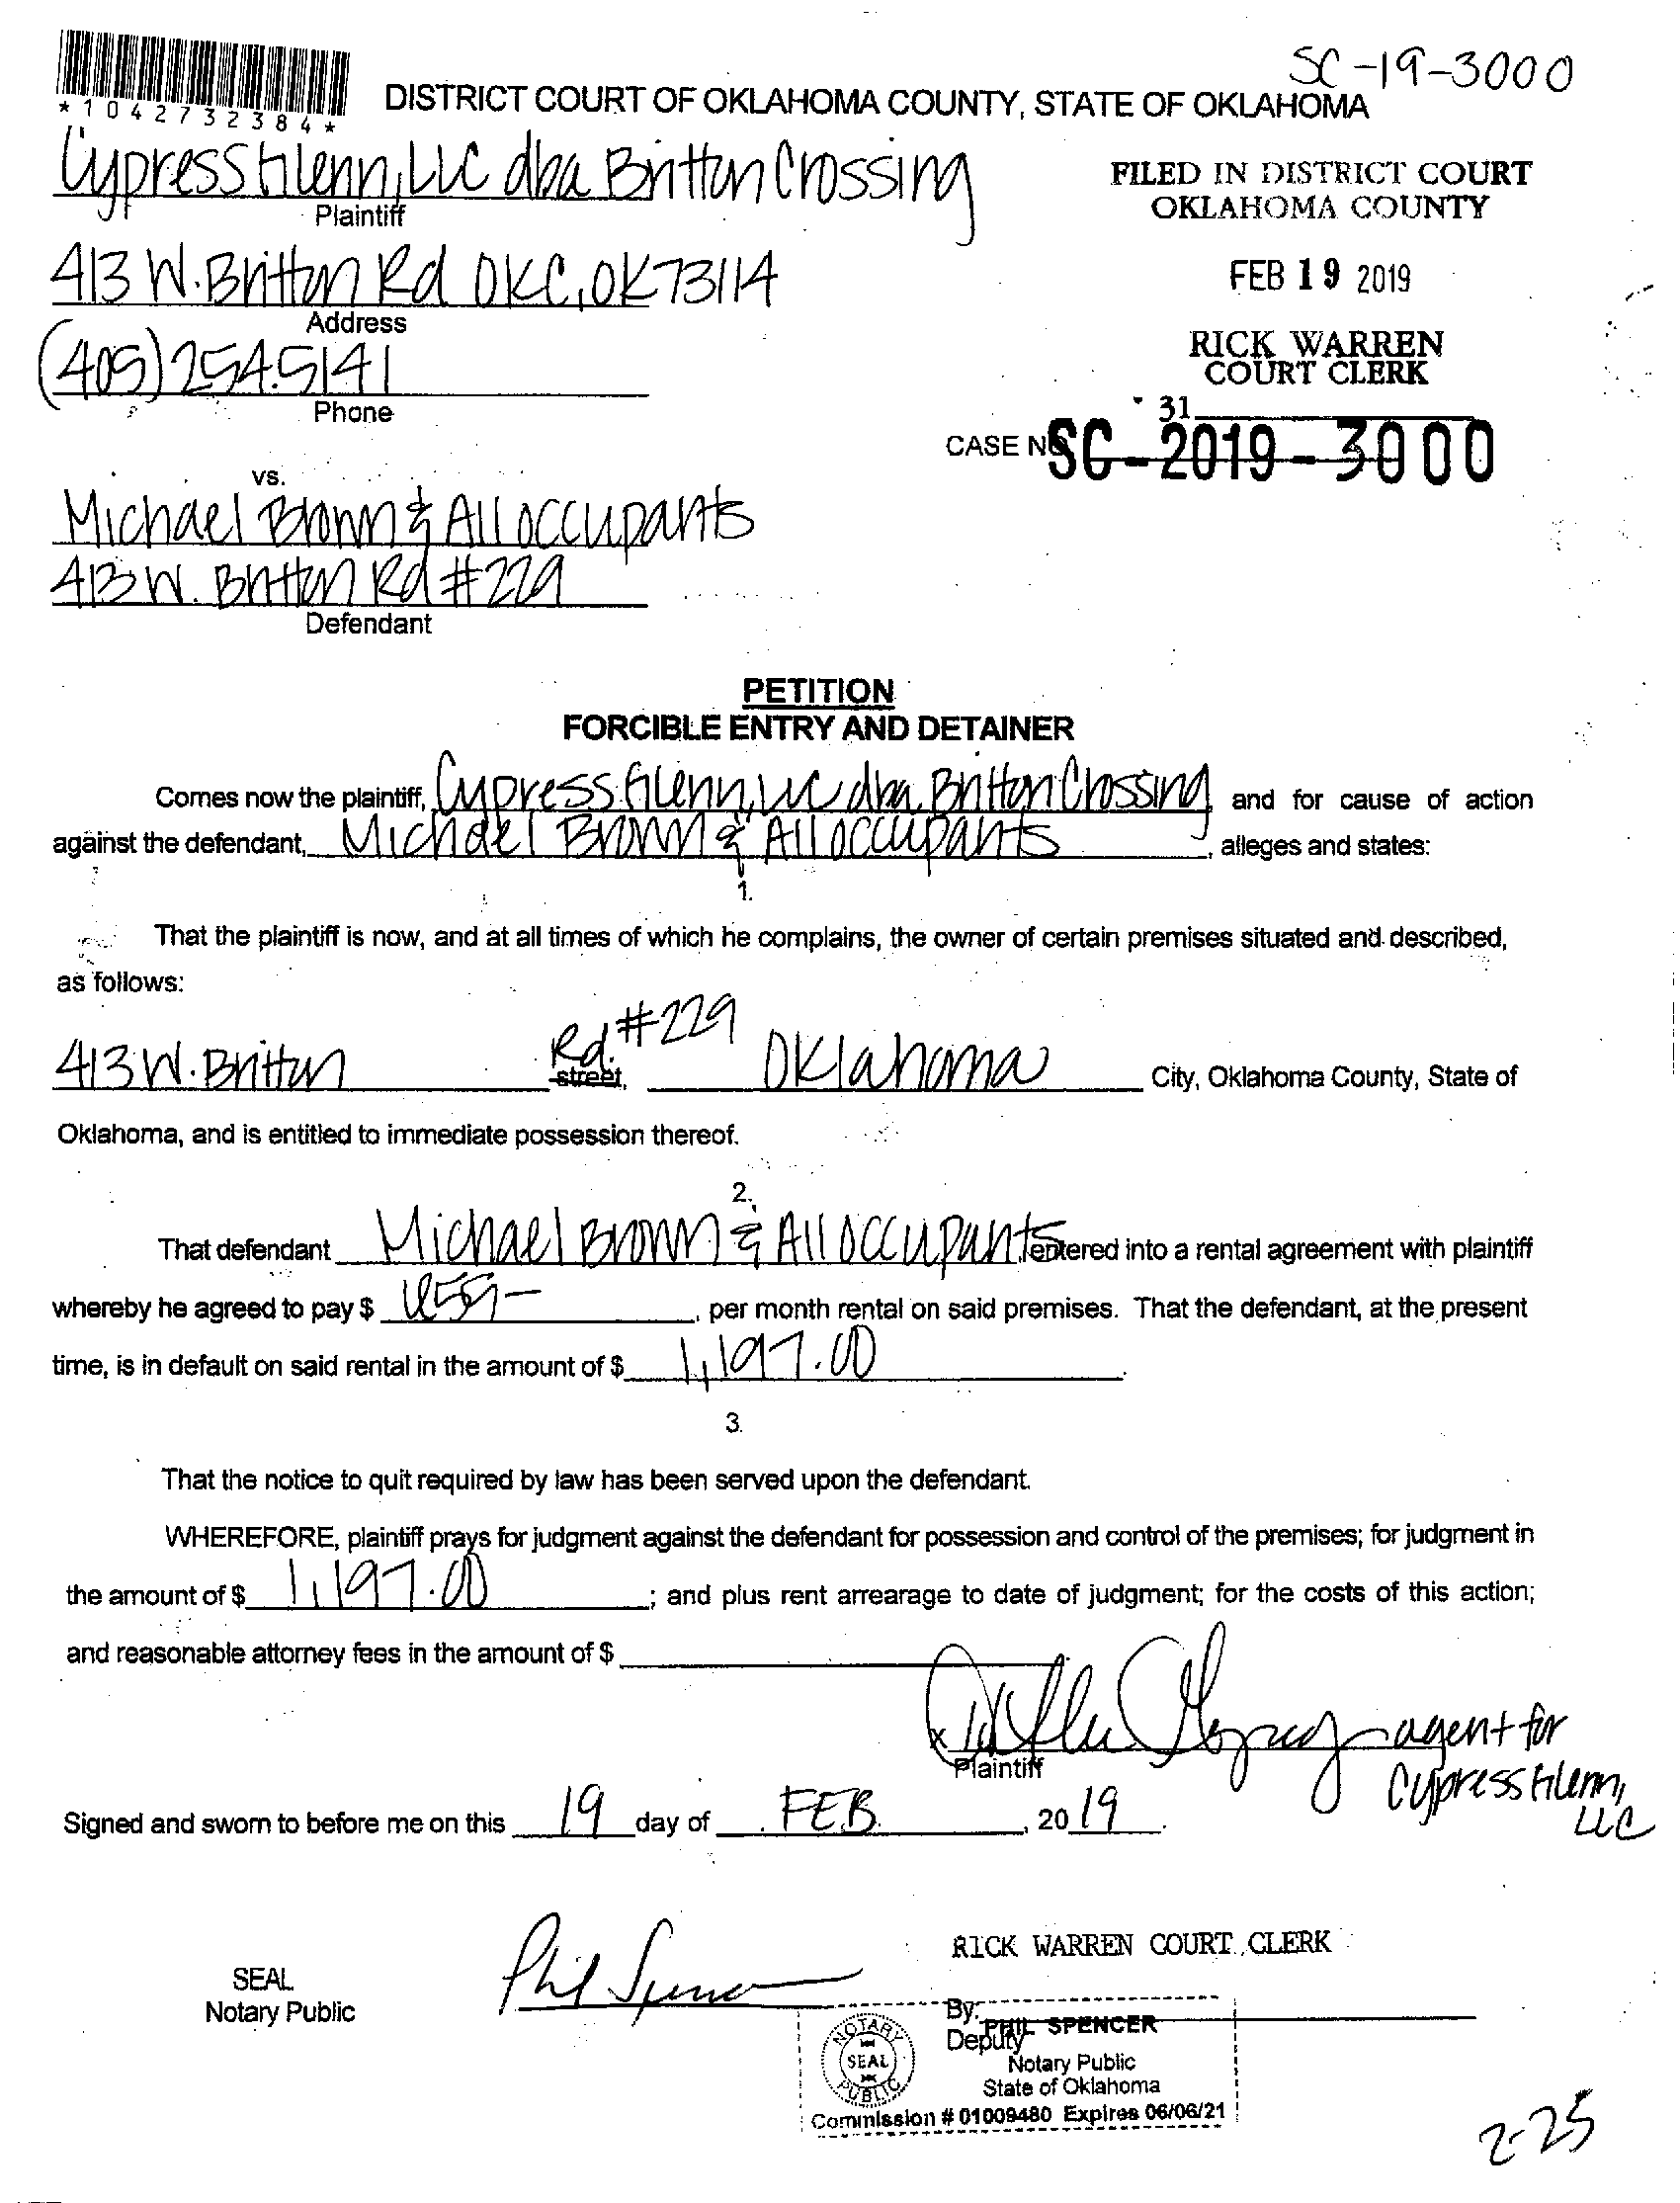 SC-19-3000
*1042732384*
DISTRICT COURT OF OKLAHOMA COUNTY, STATE OF OKLAHOMA
Cypress Glenn, LLC dba Britton Crossing
Plaintiff
FILED IN DISTRICT COURT
OKLAHOMA COUNTY
413 W. Britton Rd OKC, OK 73114
Address
FEB 19 2019
(405) 254.5141
Phone
RICK WARREN
COURT CLERK
31
CASE NO. SC-2019-3000
vs.
Michael Brown & All occupants
413 W. Britton Rd #229
Defendant
PETITION
FORCIBLE ENTRY AND DETAINER
Comes now the plaintiff, Cypress Glenn, LLC dba Britton Crossing and for cause of action
against the defendant, Michael Brown & All occupants, alleges and states:
1.
That the plaintiff is now, and at all times of which he complains, the owner of certain premises situated and described,
as follows:
413 W. Britton Rd. #229 street, Oklahoma City, Oklahoma County, State of
Oklahoma, and is entitled to immediate possession thereof.
2.
That defendant Michael Brown & All Occupants, entered into a rental agreement with plaintiff
whereby he agreed to pay $ 659-, per month rental on said premises. That the defendant, at the present
time, is in default on said rental in the amount of $ 1,197.00.
3.
That the notice to quit required by law has been served upon the defendant.
WHEREFORE, plaintiff prays for judgment against the defendant for possession and control of the premises; for judgment in
the amount of $ 1,197.00; and plus rent arrearage to date of judgment; for the costs of this action;
and reasonable attorney fees in the amount of $
x agent for
Plaintiff
Cypress Glenn,
LLC
Signed and sworn to before me on this 19 day of FEB., 2019.
RICK WARREN COURT CLERK
SEAL
Notary Public
Phil Spencer
By:
Deputy
PHIL SPENCER
NOTARY
SEAL
PUBLIC
Notary Public
State of Oklahoma
Commission # 01009480 Expires 06/06/21
2-25